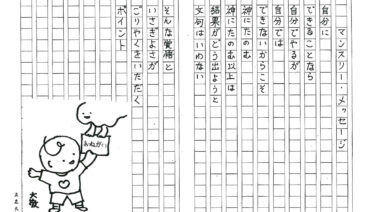 マンスリー・メッセージ
自分に
できることなら
自分でやるが
自分では
できないからこそ
神にたのむ
神にたのむ以上は
結果がどう出ようと
文句はいわない
そんな覚悟と
いさぎよさが
ごりやくをいただく
ポイント
おねがい